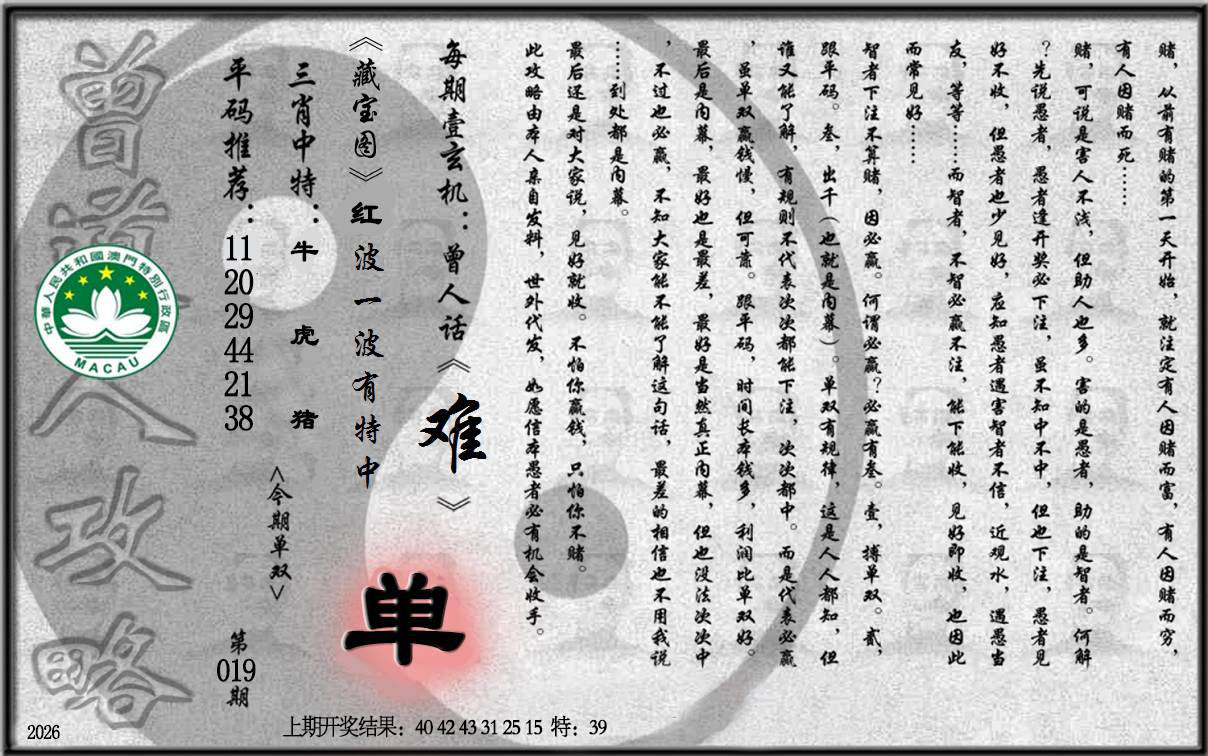 赌，从前有赌的第一天开始，就注定有人因赌而富，有人因赌而穷，
有人因赌而死……
赌，可说是害人不浅，但助人也多。害的是愚者，助的是智者。何解
？先说愚者，愚者逢开奖必下注，虽不知中不中，但也下注，愚者见
好不收，但愚者也少见好，应知愚者遇害智者不信，近观水，遇愚当
友，等等……而智者，不智必赢不注，能下能收，见好即收，也因此
而常见好……
智者下注不算赌，因必赢。何谓必赢？必赢有叁。壹，搏单双。贰，
跟平码。叁，出千（也就是内幕）。单双有规律，这是人人都知，但
谁又能了解，有规则不代表次次都能下注，次次都中。而是代表必赢
，虽单双赢钱慢，但可靠。跟平码，时间长本钱多，利润比单双好。
最后是内幕，最好也是最差，最好是当然真正内幕，但也没法次次中
，不过也必赢，不知大家能不能了解这句话，最差的相信也不用我说
……到处都是内幕。
最后还是对大家说，见好就收。不怕你赢钱，只怕你不赌。
此攻略由本人亲自发料，世外代发，如愿信本愚者必有机会收手。
每期壹玄机：曾人话《难》
《藏宝图》红波一波有特中
单
三肖中特：牛虎猪
<今期单双>
平码推荐：
11
20
29
44
21
38
第
019
期
曾道人攻略
中華人民共和國澳門特別行政區
MACAU
上期开奖结果：40 42 43 31 25 15 特：39
2026